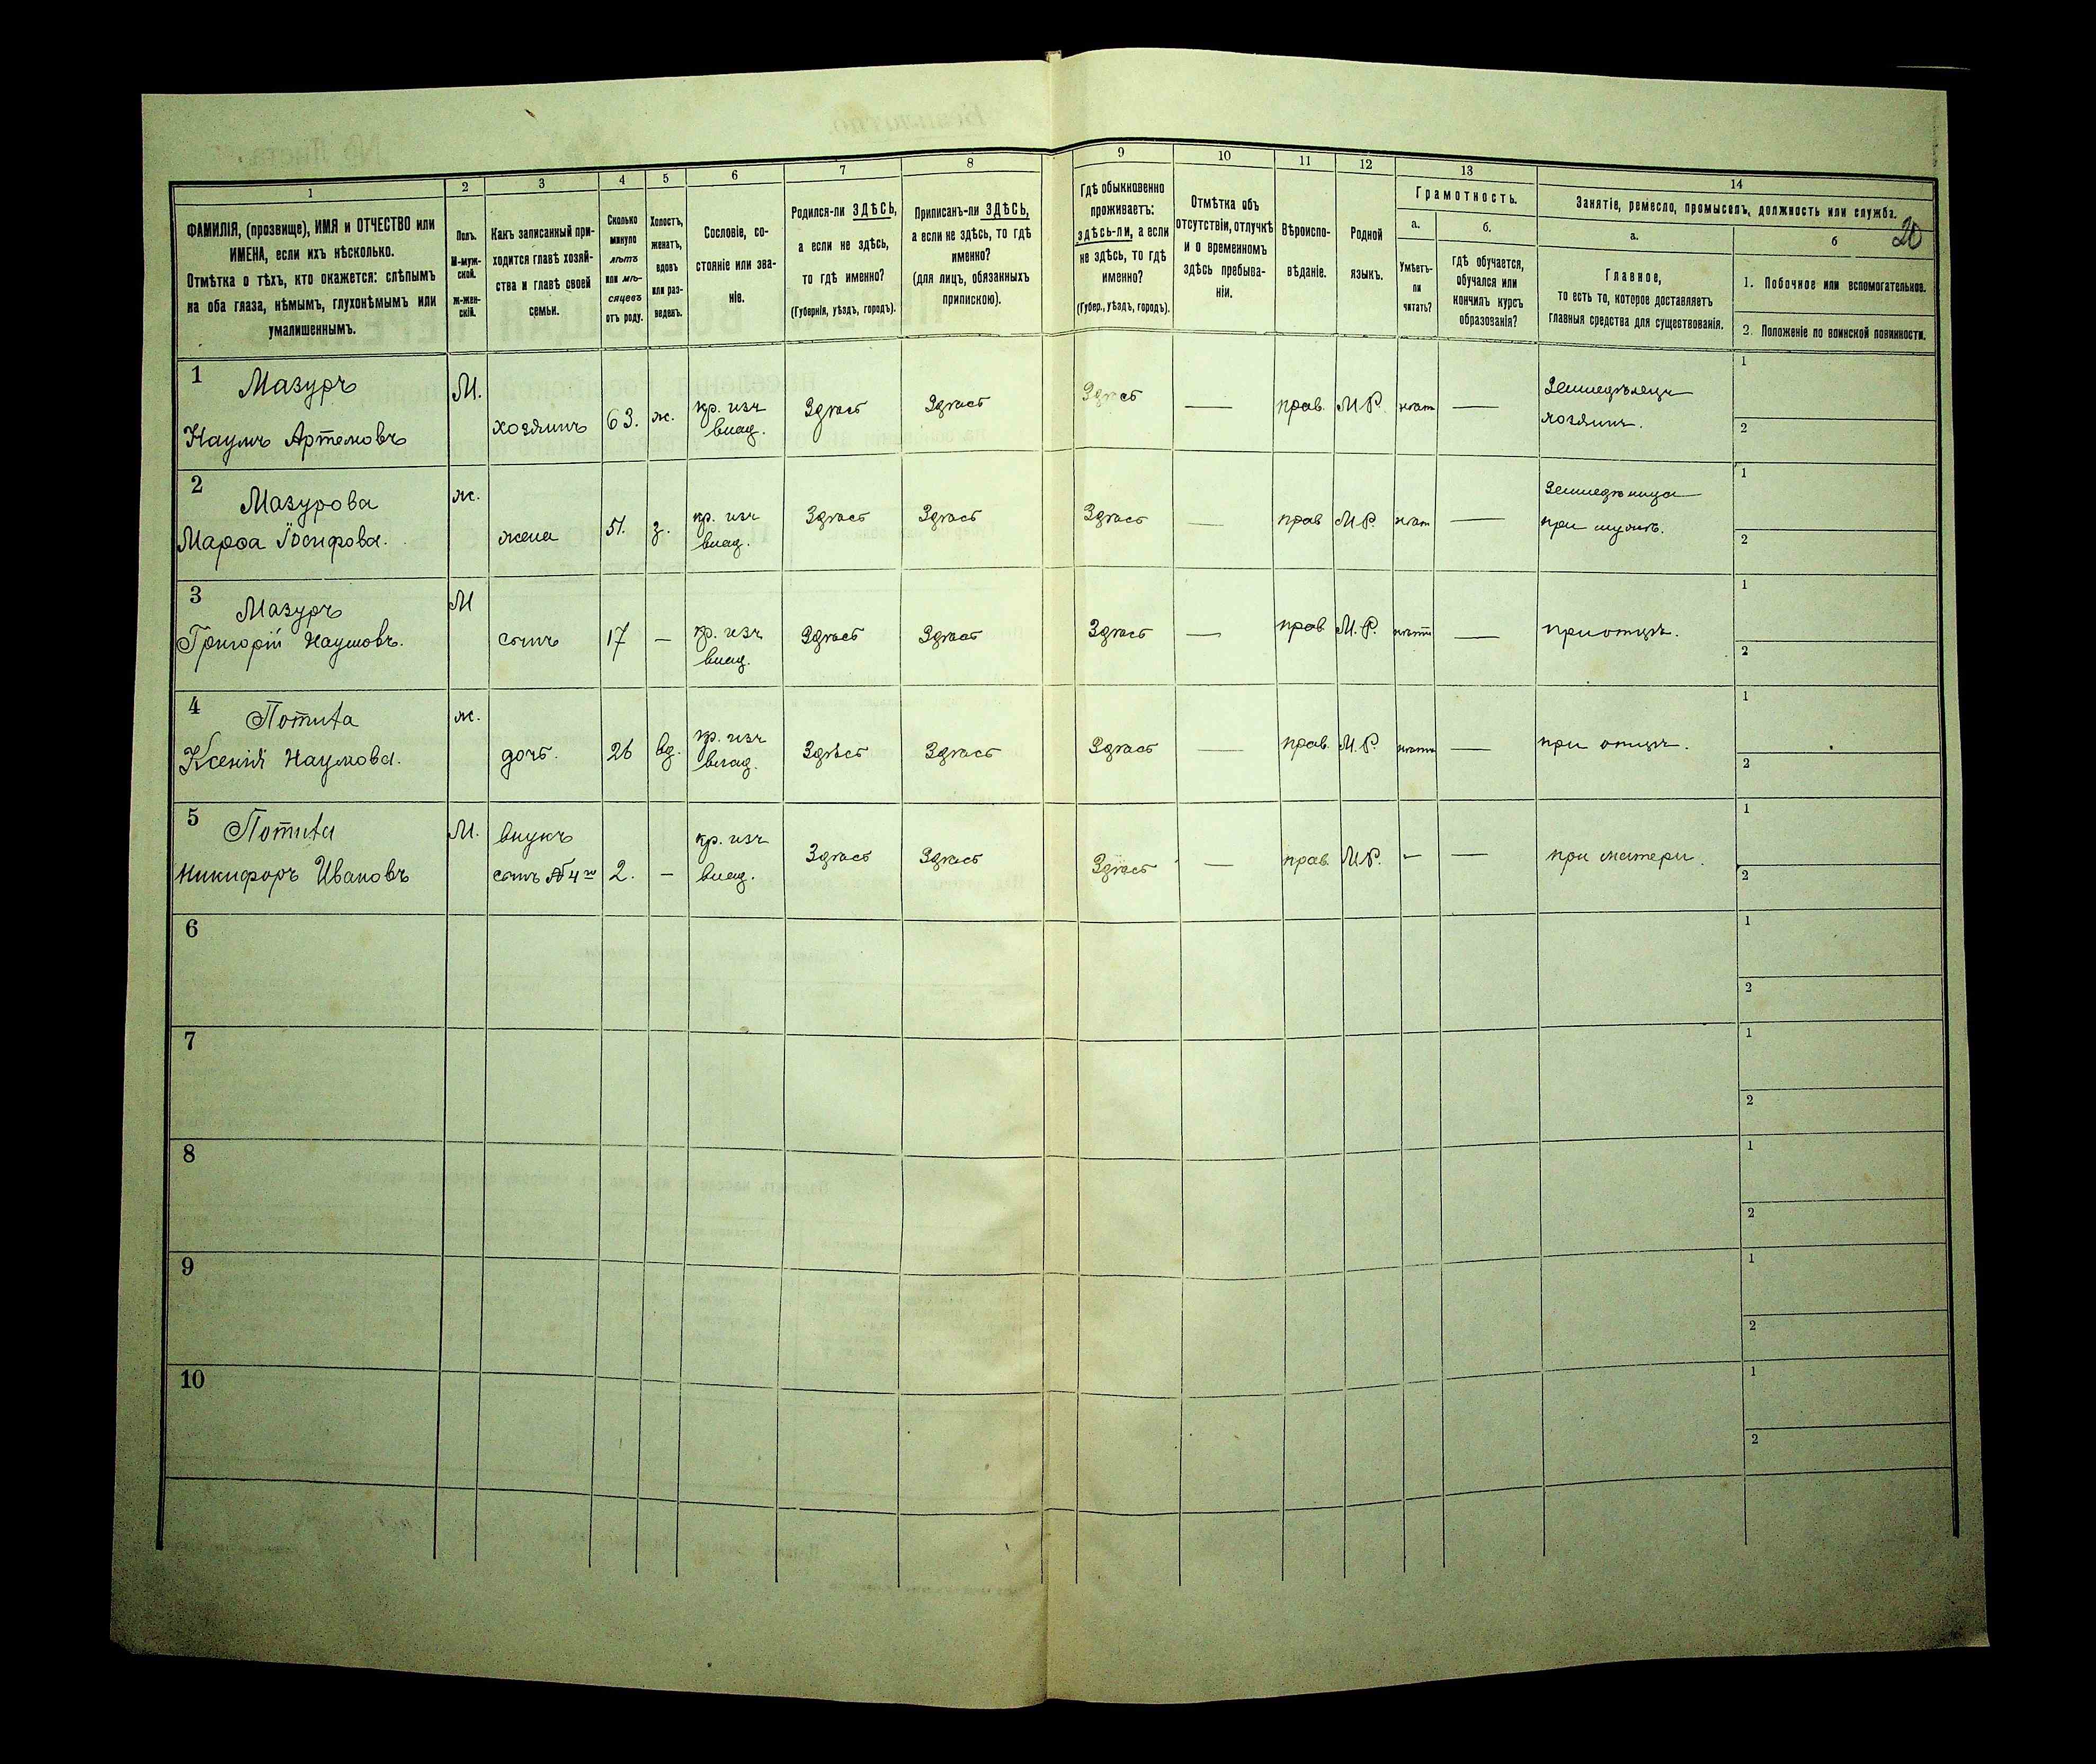 1 2 3 4 5 6 7 8 9 10 11 12 13 14
20
ФАМИЛІЯ, (прозвище), ИМЯ и ОТЧЕСТВО или
ИМЕНА, если ихъ нѣсколько.
Отмѣтка о тѣхъ, кто окажется: слѣпымъ
на оба глаза, нѣмымъ, глухонѣмымъ или
умалишеннымъ.
Полъ.
М-муж-
ской.
ж-жен-
скій.
Какъ записанный при-
ходится главѣ хозяй-
ства и главѣ своей
семьи.
Сколько
минуло
лѣтъ
или мѣ-
сяцевъ
отъ роду.
Холостъ,
женатъ,
вдовъ
или раз-
веденъ.
Сословіе, со-
стояніе или зва-
ніе.
Родился-ли ЗДѢСЬ,
а если не здѣсь,
то гдѣ именно?
(Губернія, уѣздъ, городъ).
Приписанъ-ли ЗДѢСЬ,
а если не здѣсь, то гдѣ
именно?
(для лицъ, обязанныхъ
припискою).
Гдѣ обыкновенно
проживаетъ:
здѣсь-ли, а если
не здѣсь, то гдѣ
именно?
(Губер., уѣздъ, городъ).
Отмѣтка объ
отсутствіи, отлучкѣ
и о временномъ
здѣсь пребыва-
ніи.
Вѣроиспо-
вѣданіе.
Родной
языкъ.
Грамотность.
а.
Умѣетъ-
ли
читать?
б.
гдѣ обучается,
обучался или
кончилъ курсъ
образованія?
Занятіе, ремесло, промыселъ, должность или служба.
а.
Главное,
то есть то, которое доставляетъ
главныя средства для существованія.
б
1. Побочное или вспомогательное.
2. Положеніе по воинской повинности.
1 Мазуръ М. хозяинъ 63. ж. кр. изъ Здѣсь Здѣсь Здѣсь — прав. М.Р. нѣтъ — Земледѣлецъ 1
Наумъ Артемовъ влад. хозяинъ. 2
2 Мазурова ж. жена 51. з. кр. изъ Здѣсь Здѣсь Здѣсь — прав М.Р. нѣтъ — 1
Марѳа Іосифова. влад. при мужѣ. 2
3 Мазуръ М сынъ 17 — кр. изъ Здѣсь Здѣсь Здѣсь — прав М.Р. нѣтъ — при отцѣ. 1
Григорій Наумовъ. влад. 2
4 ж. дочь. 26 вд. кр. изъ Здѣсь Здѣсь Здѣсь — прав. М.Р. нѣтъ — при отцѣ. 1
Ксенія Наумова. влад. 2
5 М. внукъ кр. изъ Здѣсь Здѣсь Здѣсь — прав. М.Р. — — при матери. 1
Никифоръ Ивановъ сынъ № 4го 2. — влад. 2
6 1
2
7 1
2
8 1
2
9 1
2
10 1
2